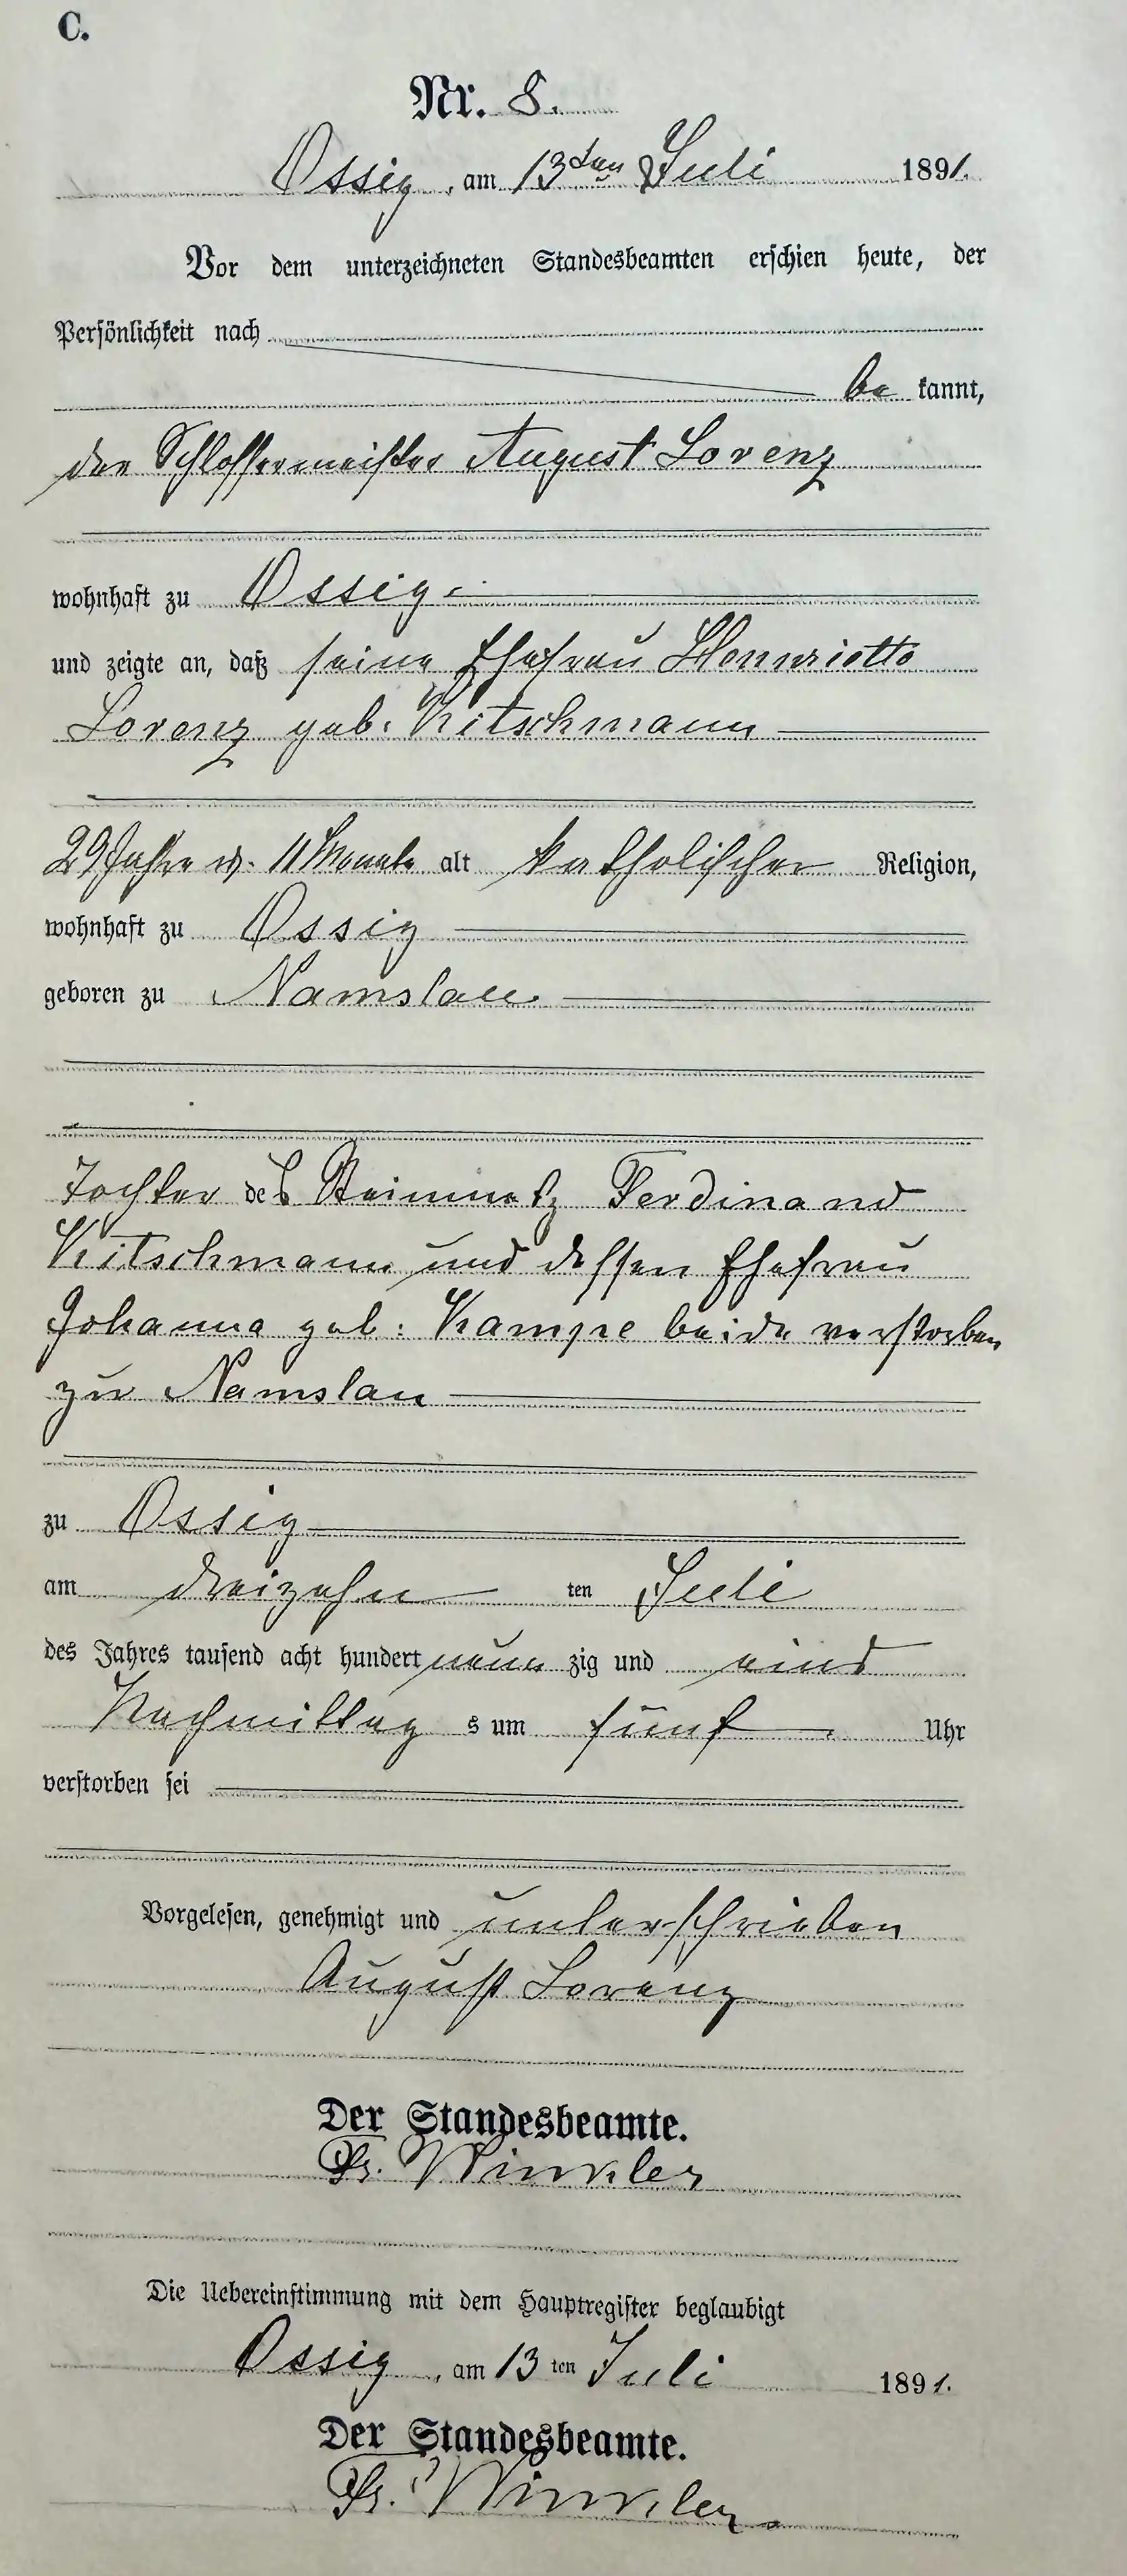 C.
Nr. 8.
Ossig, am 13ten Juli 1891.
Vor dem unterzeichneten Standesbeamten erschien heute, der
Persönlichkeit nach
be kannt,
der Schlossermeister August Lorenz
wohnhaft zu Ossig
und zeigte an, daß seine Ehefrau Henriette
Lorenz geb. Kitschmann
29 Jahre u. 11 Monate alt katholischer Religion,
wohnhaft zu Ossig
geboren zu Namslau
Tochter des Steinmetz Ferdinand
Kitschmann und dessen Ehefrau
Johanna geb. Kampe beide verstorben
zu Namslau
zu Ossig
am dreizehn ten Juli
des Jahres tausend acht hundert neun zig und eins
Nachmittag s um fünf Uhr
verstorben sei
Vorgelesen, genehmigt und unterschrieben
August Lorenz
Der Standesbeamte.
Fr. Winkler
Die Uebereinstimmung mit dem Hauptregister beglaubigt
Ossig, am 13 ten Juli 1891.
Der Standesbeamte.
Fr. Winkler